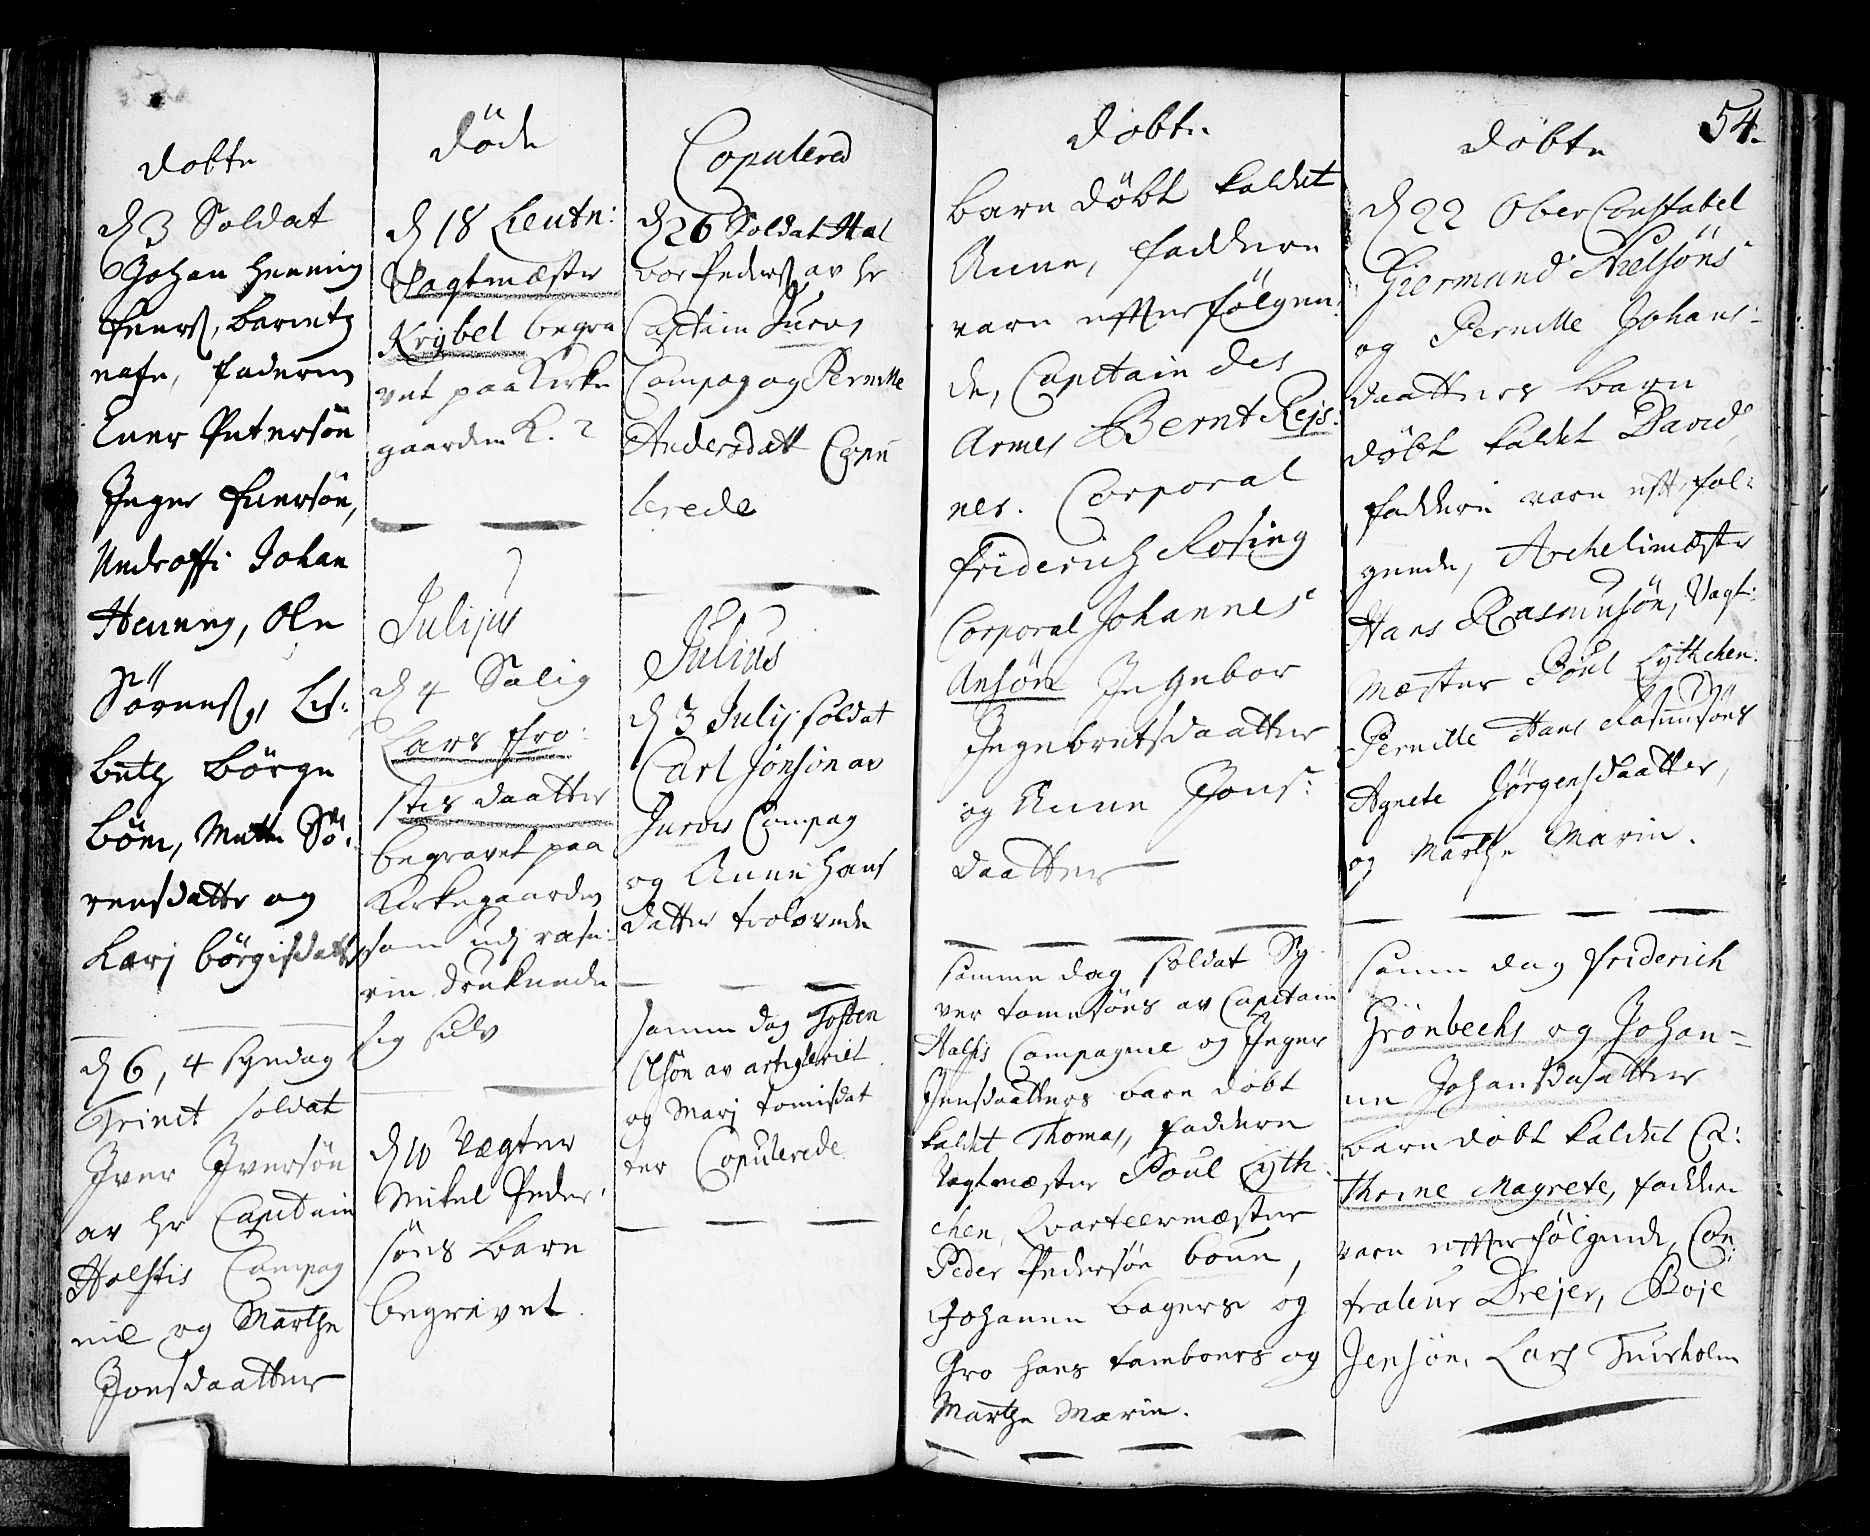 54.
Döbte
d 3 Soldat
Johan Henning
barn
Faderen
Ener Petersön
Inger Enersön,
Johan
Henning, Ole
Börge
Mette Sö:
rensdatter og
Kari Börgisdatt
d 6, 4 Syndag
Trinit Soldat
Iver Iversön
av hr Capitain
Holstis Compag
nie og Marthe
Jonsdaatter
Döde
d 18 Leutn:
Vagtmæster
Krybel begra
vet paa Kirke
gaarden K. 2
Julijus
d 4 Salig
Lars Fro:
stis daatter
begravet paa
Kirkegaarden
som udj rase:
rie druknede
sig selv
d 10 Vægter
Mikel Peder:
söns barn
begravet.
Copulered
d 26 Soldat Hal
vor Peders av hr
Captain Jurvs
Compag og Pernille
Andersdatt Copu
lerede
Julius
d 3 Julij Soldat
Carl Jönsön av
Jurvs Compag
og Anne Hans
datter trolovede
samme dag Tosten
Olsön av artigleriet
og Marj tomisdat
ter Copulerede
Döbte
barn döbt kaldet
Anne, faddere
vare efterfölgen:
de, Capitain des
Armes Bernt Rejs:
ner. Corporal
Friderich Rosing
Corporal Johannes
Ansön Ingebor
Ingebretsdaatter
og Anne Jons:
daatter
samme dag Soldat Sy
ver tomesöns av Capitain
Holstis Compagnie og Inger
Jensdaatters barn döbt
kaldet Thomas, faddere
Vagtmæster Poul Lyth
chen, Qvarteermæster
Peder Pedersön boun,
Johanne bagers og
Gro hans tambours og
Marthe Marie.
Döbte
d 22 Ober Constabel
Giermand Nielsöns
og Pernille Johans:
daatters barn
döbt kaldet David,
faddere vare efterföl:
gende, Archelimæster
Hans Rasmusön, Vagt:
mæster Poul Lythchen.
Pernille Hans Rasmusöns
Agnete Jörgensdaatter,
og Marthe Marie.
samme dag Friderich
Grönbechs og Johan=
ne Johansdaatter
barn döbt kaldet Ca:
thrine Magrete, faddere
vare efterfölgende, Con:
traleur Drejer, Boje
Jensön, Lars Tuirholm